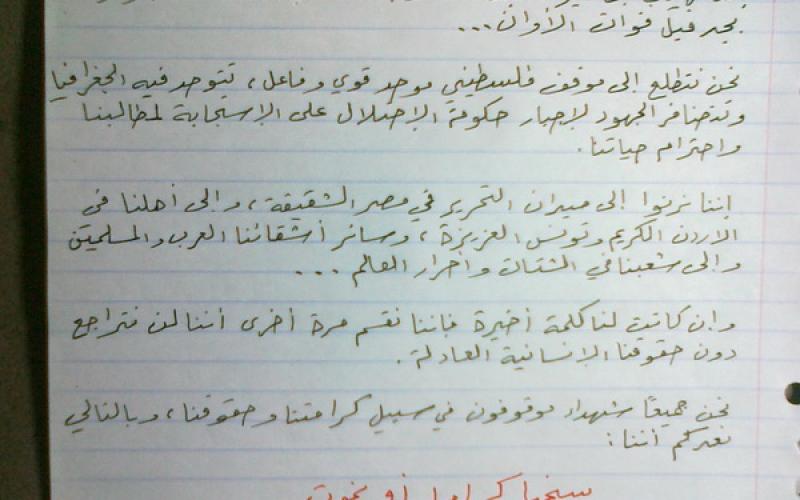 يجد قبل فوات الأوان...
نحن نتطلع إلى موقف فلسطيني موحد قوي وفاعل، تتوحد فيه الجغرافيا
وتتضافر الجهود لإجبار حكومة الإحتلال على الإستجابة لمطالبنا
واحترام حياتنا.
إننا نرنوا إلى ميدان التحرير في مصر الشقيقة، وإلى أهلنا في
الأردن الكريم وتونس العزيزة، وسائر أشقائنا العرب والمسلمين
وإلى شعبنا في الشتات وأحرار العالم ...
وإن كانت لنا كلمة أخيرة فإننا نقسم مرة أخرى أننا لن نتراجع
دون حقوقنا الإنسانية العادلة.
نحن جميعًا شهداء موقوفون في سبيل كرامتنا وحقوقنا، وبالتالي
نعدكم أننا:
سنحيا كراما أو نموت